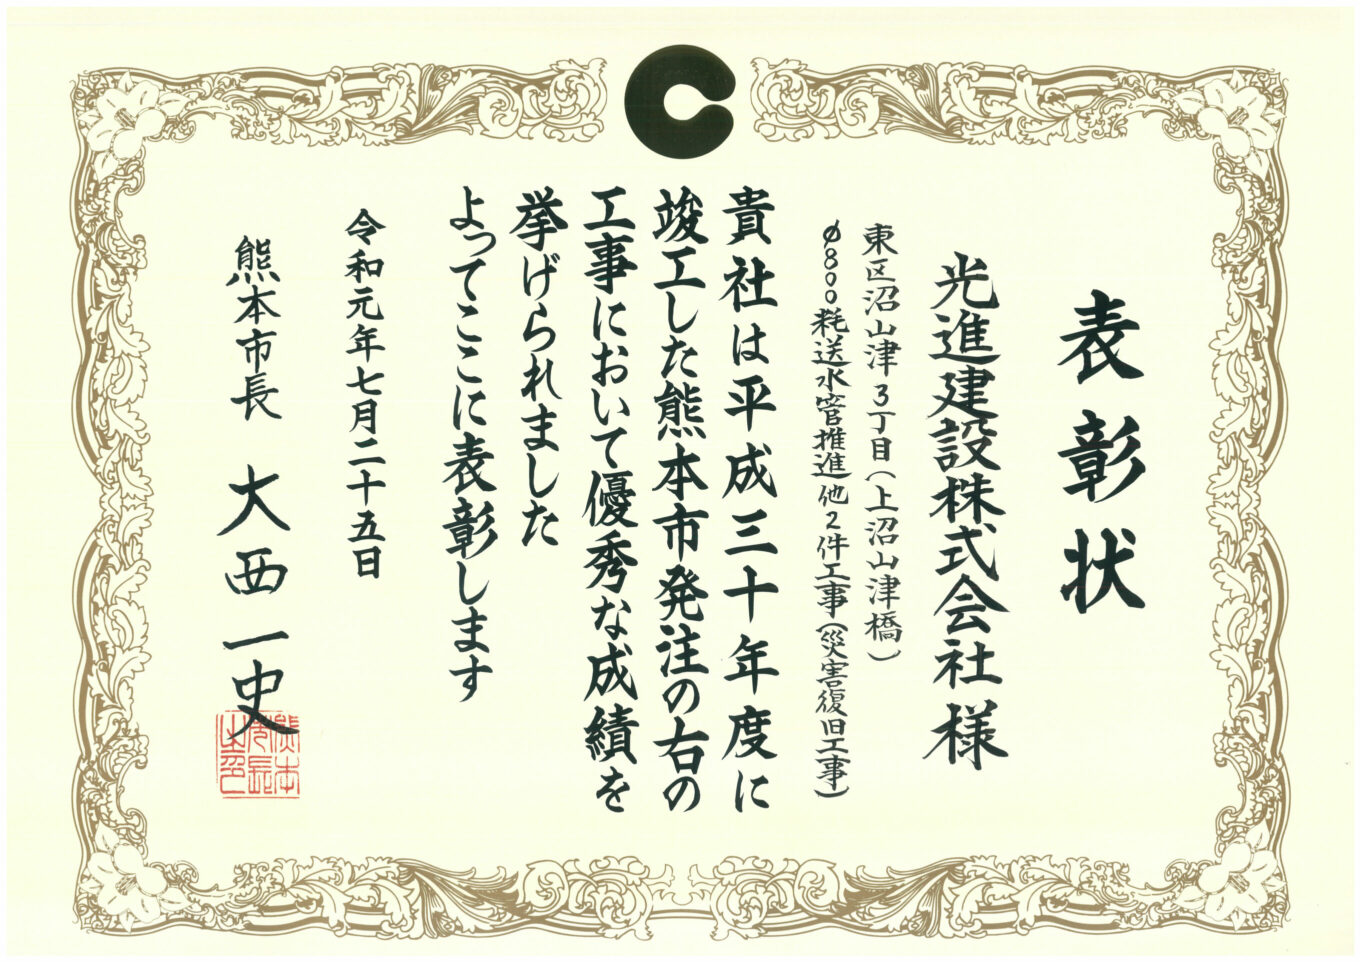 表彰状
光進建設株式会社様
東区沼山津3丁目(上沼山津橋)
φ800粍送水管推進他2件工事(災害復旧工事)
貴社は平成三十年度に
竣工した熊本市発注の右の
工事において優秀な成績を
挙げられました
よってここに表彰します
令和元年七月二十五日
熊本市長 大西一史
熊本
市長
之印